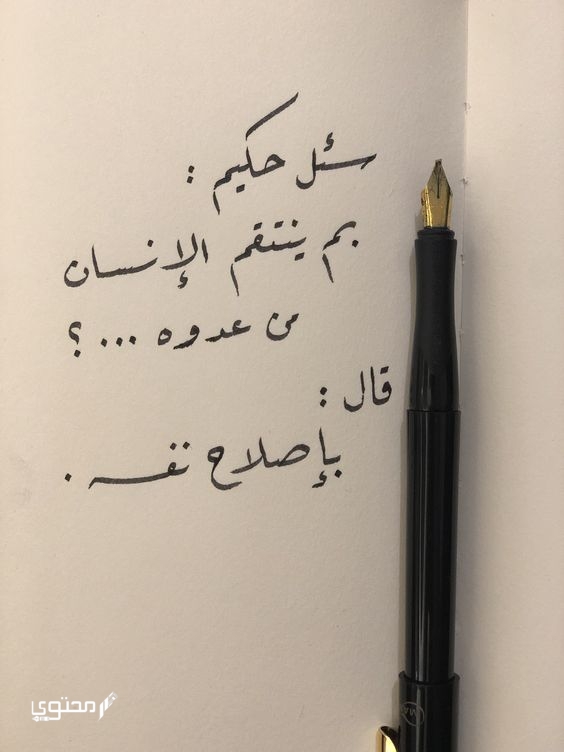 سئل حكيم :
بم ينتقم الإنسان
من عدوه ... ؟
قال :
بإصلاح نفسه .
محتوى